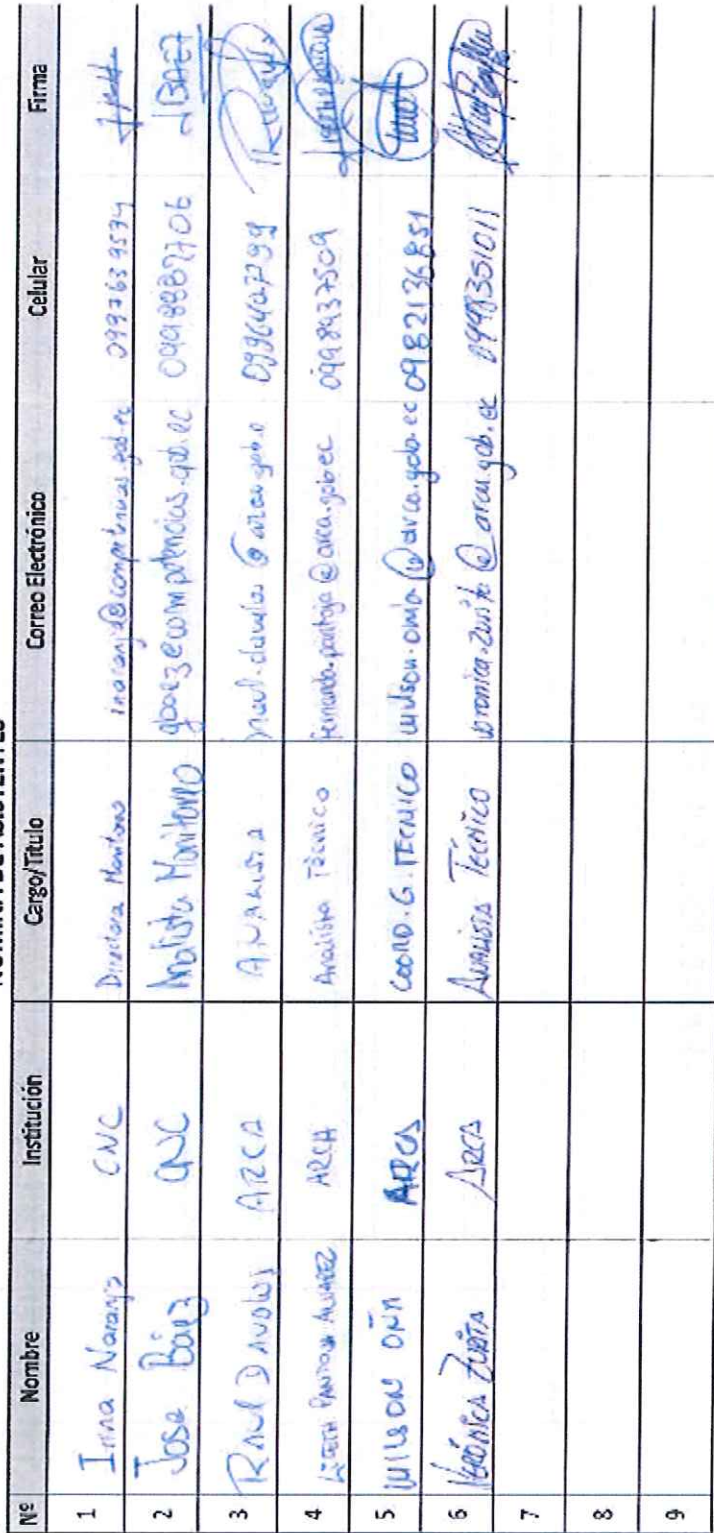 NOMINA DE ASISTENTES
Nº Nombre Institución Cargo/Título Correo Electrónico Celular Firma
1 Irma Naranjo CNC Directora Monitoreo 0997639534
2 Jose Báez CNC Analista Monitoreo gbaez@competencias.gob.ec 0998887706 JBAEZ
3 Raul Davalos ARCA ANALISTA 0996402799
4 LIZETH PANTOJA ALVAREZ ARCA Analista Técnico fernanda.pantoja@arca.gob.ec 0998937509
5 WILSON OÑA ARCA COORD. G. TECNICO wilson.onia@arca.gob.ec 0982136851
6 Verónica Zurita ARCA Analista Técnico veronica.zurita@arca.gob.ec 0998351011
7
8
9